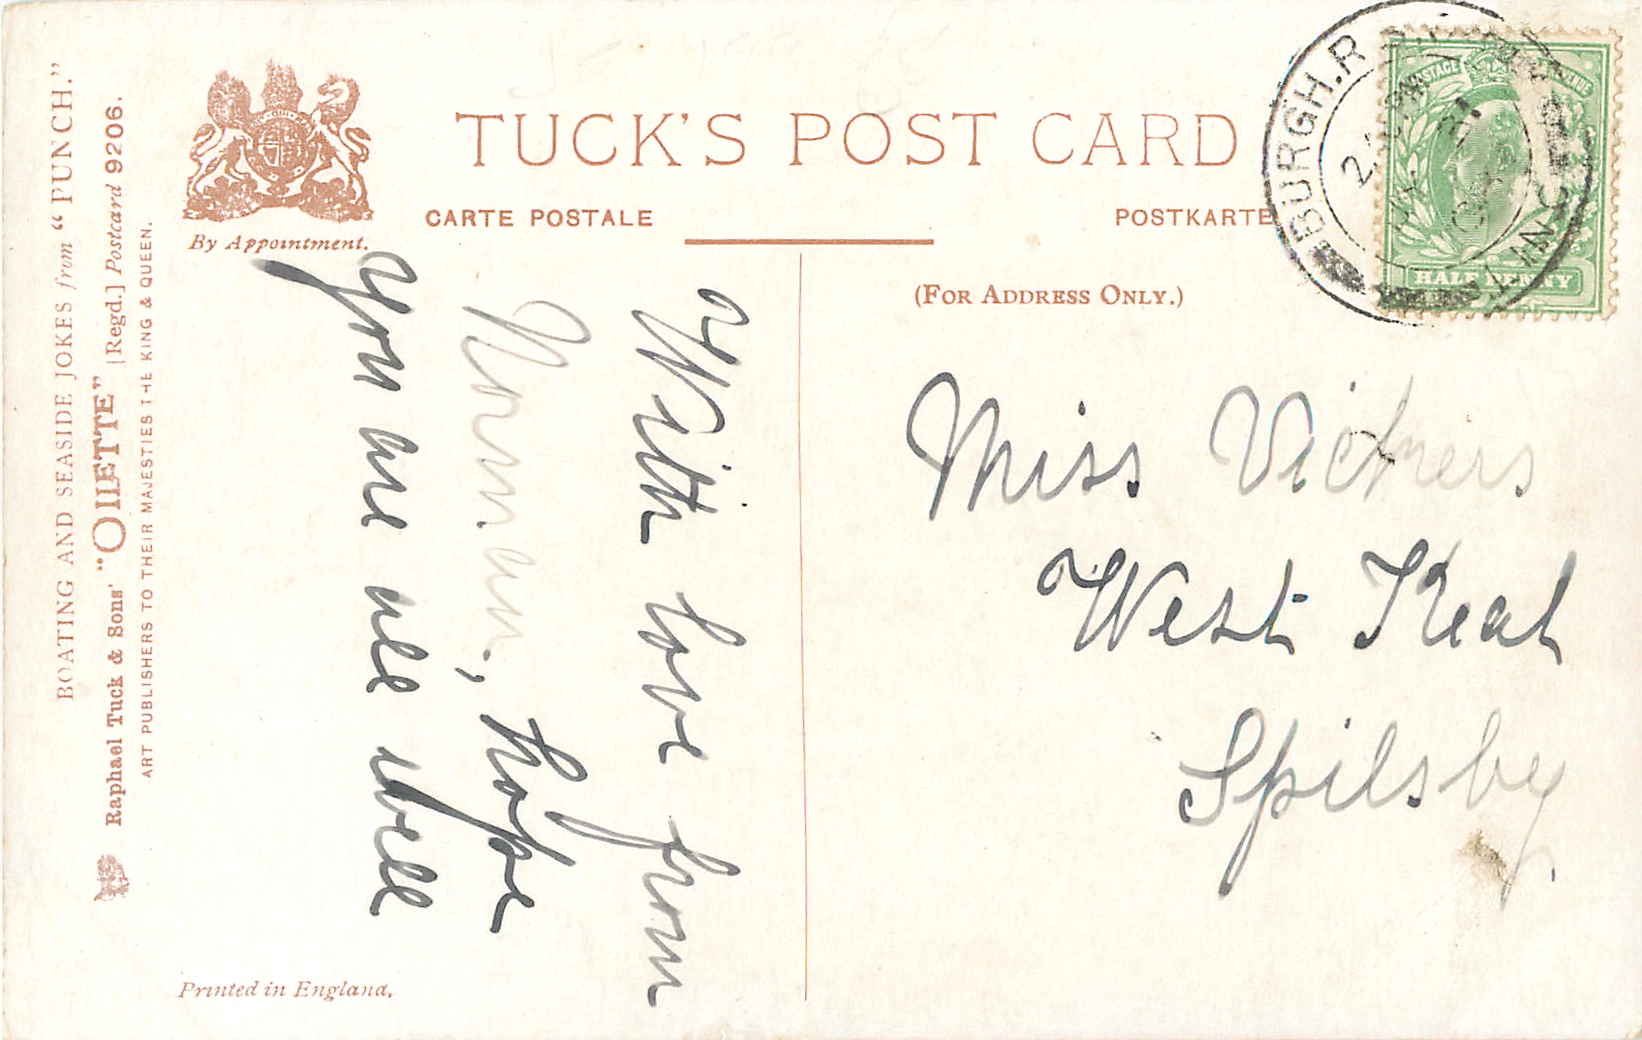 BOATING AND SEASIDE JOKES from "PUNCH."
Raphael Tuck & Sons' "OILETTE" [Regd.] Postcard 9206.
ART PUBLISHERS TO THEIR MAJESTIES THE KING & QUEEN.
By Appointment.
TUCK'S POST CARD
CARTE POSTALE
POSTKARTE
(FOR ADDRESS ONLY.)
BURGH.R
LINC
POSTAGE
HALF PENNY
With love from
Norman, hope
you are all well
Miss Vickers
West Keal
Spilsby
Printed in England.